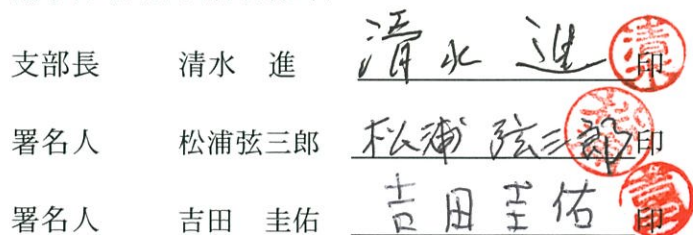 支部長 清水 進 清水 進 印 清水
署名人 松浦弦三郎 松浦 弦三郎 印
署名人 吉田 圭佑 吉田 圭佑 印